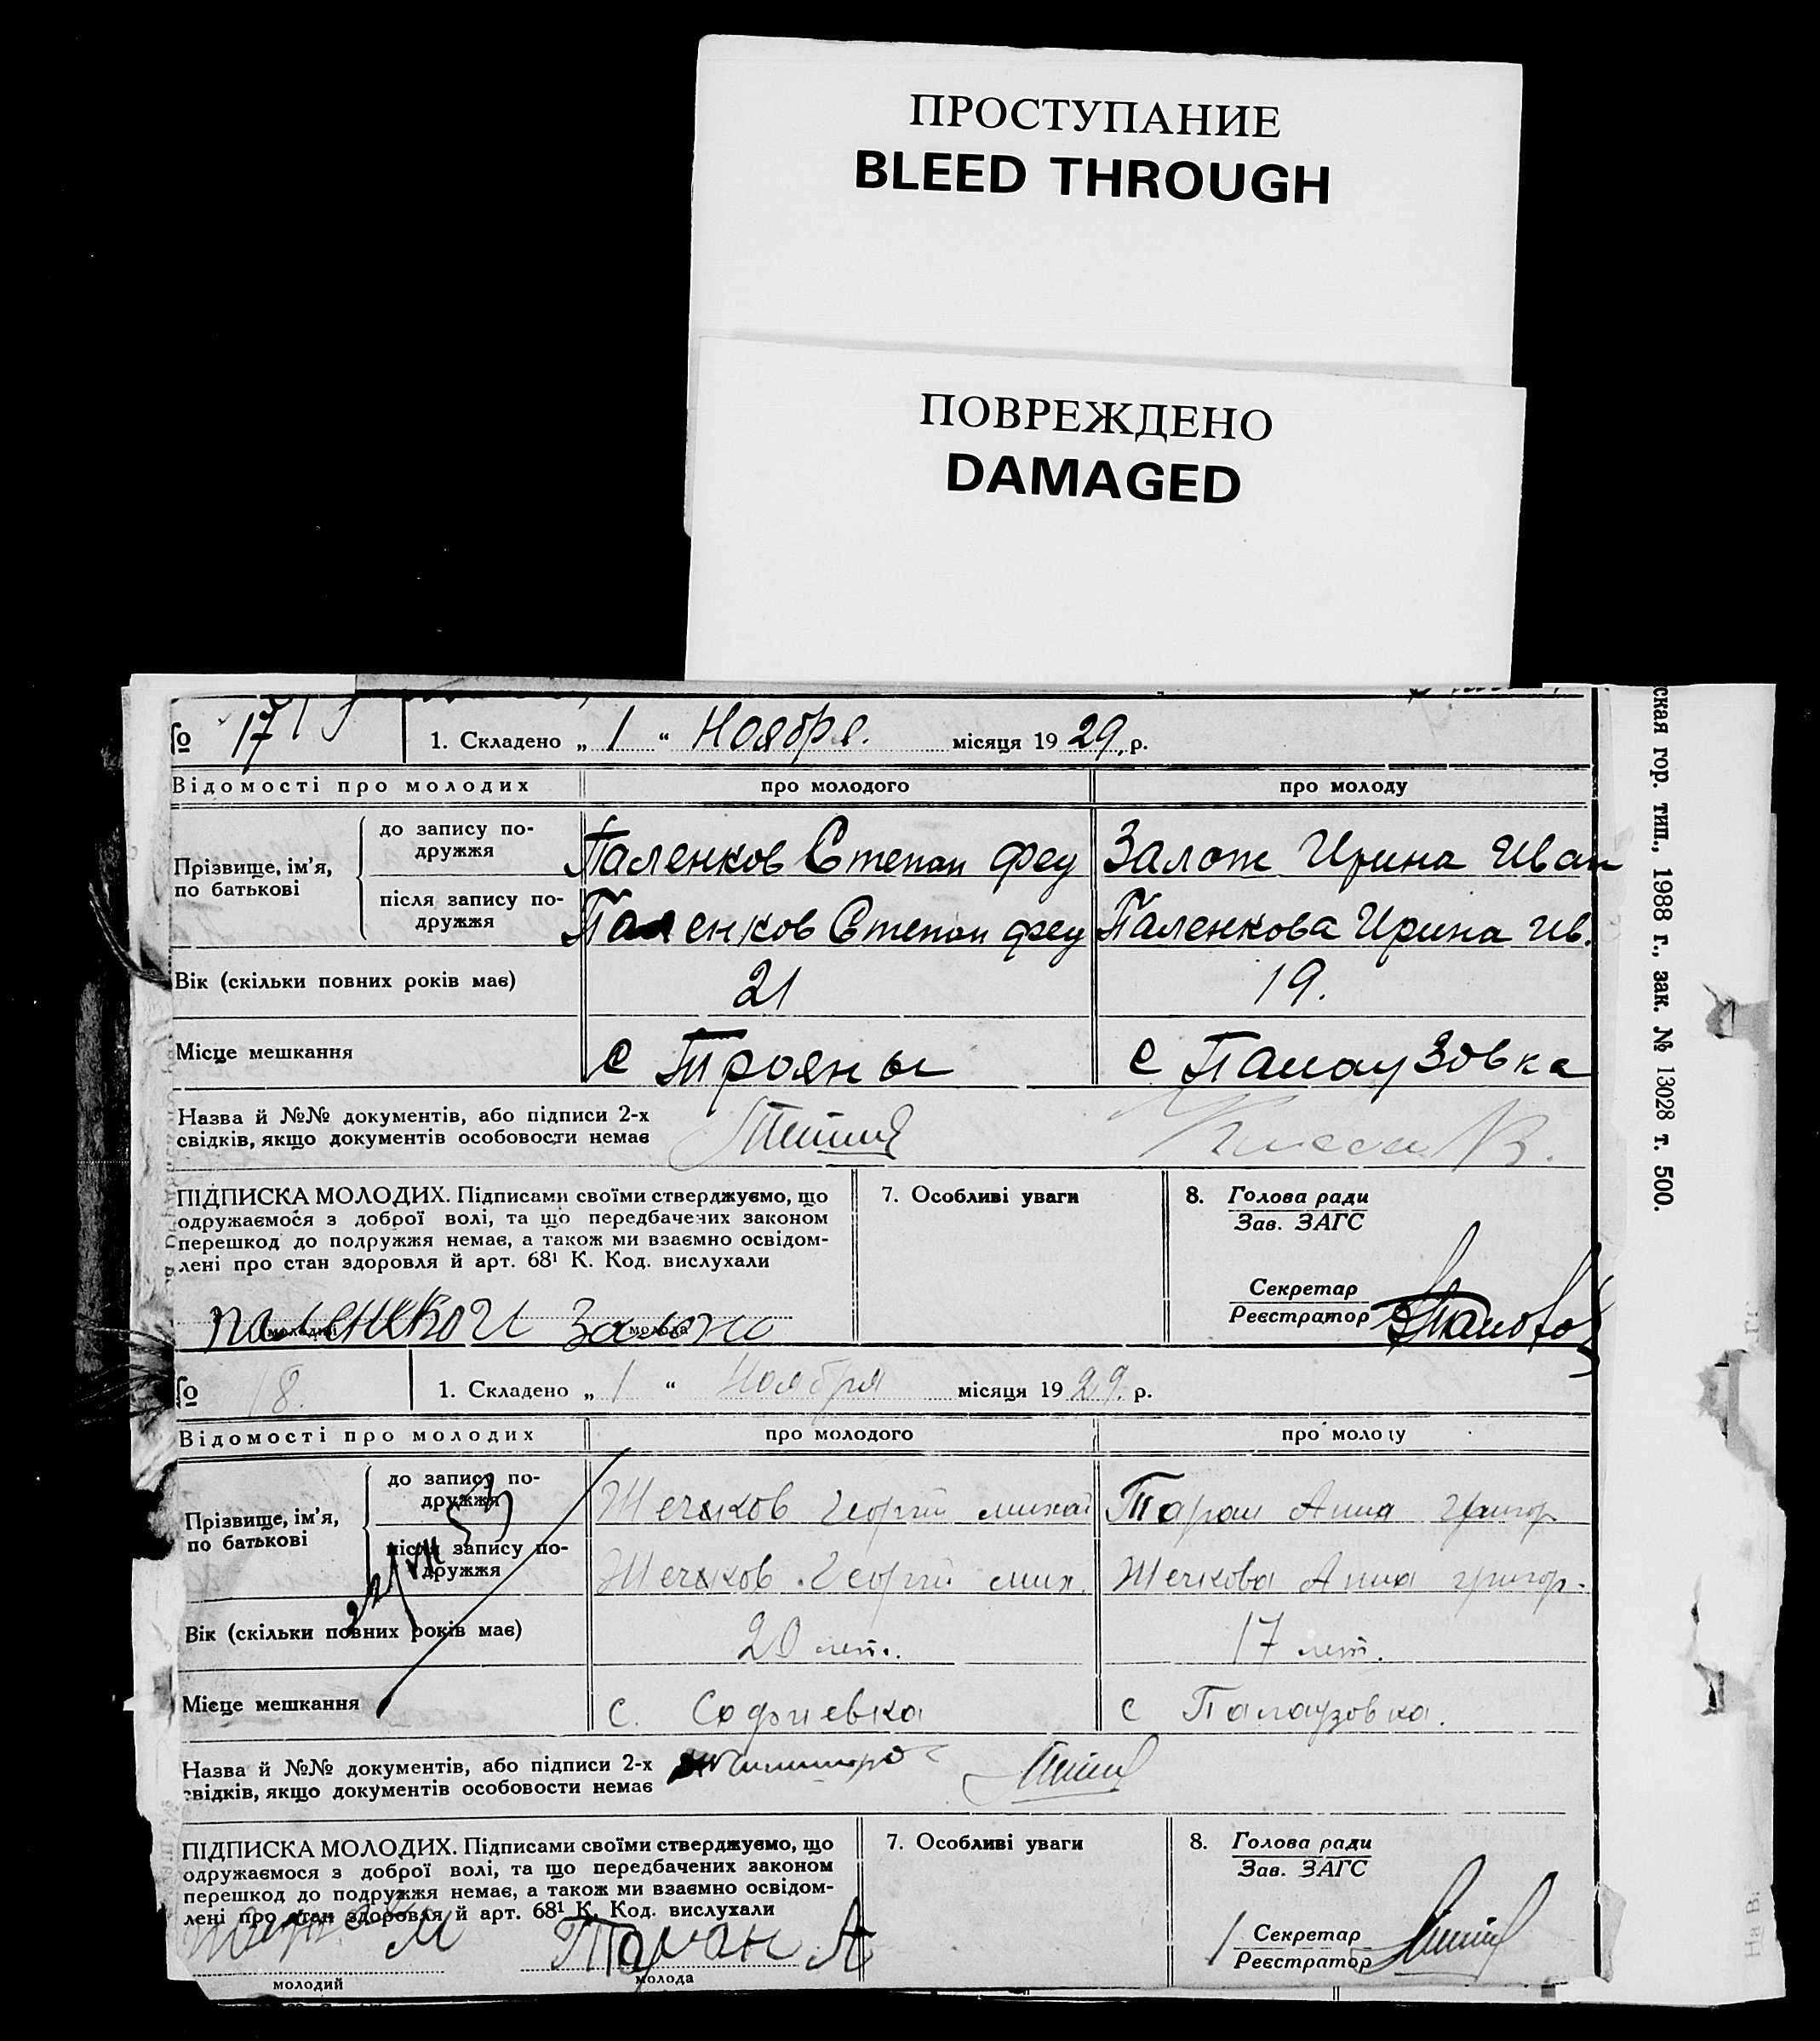 ПРОСТУПАНИЕ
BLEED THROUGH
ПОВРЕЖДЕНО
DAMAGED
№ 17 1. Складено „ 1 “ Ноября. місяця 19 29, р.
Відомості про молодих про молодого про молоду
Прізвище, ім’я, по батькові
до запису по-
дружжя
Паленков Степан Фед Залож Ирина Иван
після запису по-
дружжя
Паленков Степан Фед Паленкова Ирина Ив.
Вік (скільки повних років має) 21 19.
Місце мешкання с Трояны с Палаузовка
Назва й №№ документів, або підписи 2-х
свідків, якщо документів особовости немає
ПІДПИСКА МОЛОДИХ. Підписами своїми стверджуємо, що
одружаємося з доброї волі, та що передбачених законом
перешкод до подружжя немає, а також ми взаємно освідом-
лені про стан здоровля й арт. 68¹ К. Код. вислухали
молодий молода
7. Особливі уваги
8. Голова ради
Зав. ЗАГС
Секретар
Реєстратор
№ 18. 1. Складено „ 1 “ Ноября місяця 19 29. р.
Відомості про молодих про молодого про молоду
Прізвище, ім’я, по батькові
до запису по-
дружжя
Жечков Георгий михай Таран Анна Григор
після запису по-
дружжя
Жечков Георгий мих. Жечкова Анна григор.
Вік (скільки повних років має) 20 лет. 17 лет.
Місце мешкання с. Софиевка с Палаузовка.
Назва й №№ документів, або підписи 2-х
свідків, якщо документів особовости немає
ПІДПИСКА МОЛОДИХ. Підписами своїми стверджуємо, що
одружаємося з доброї волі, та що передбачених законом
перешкод до подружжя немає, а також ми взаємно освідом-
лені про стан здоровля й арт. 68¹ К. Код. вислухали
Таран А
молодий молода
7. Особливі уваги
8. Голова ради
Зав. ЗАГС
Секретар
Реєстратор
ская гор. тип., 1988 г., зак. № 13028 т. 500.